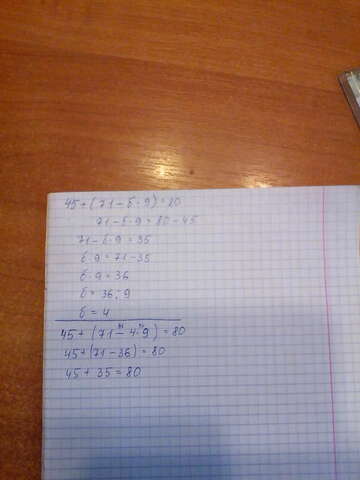 45+(71-б·9)=80
71-б·9=80-45
71-б·9=35
б·9=71-35
б·9=36
б=36:9
б=4
45+(71-4·9)=80
45+(71-36)=80
45+35=80